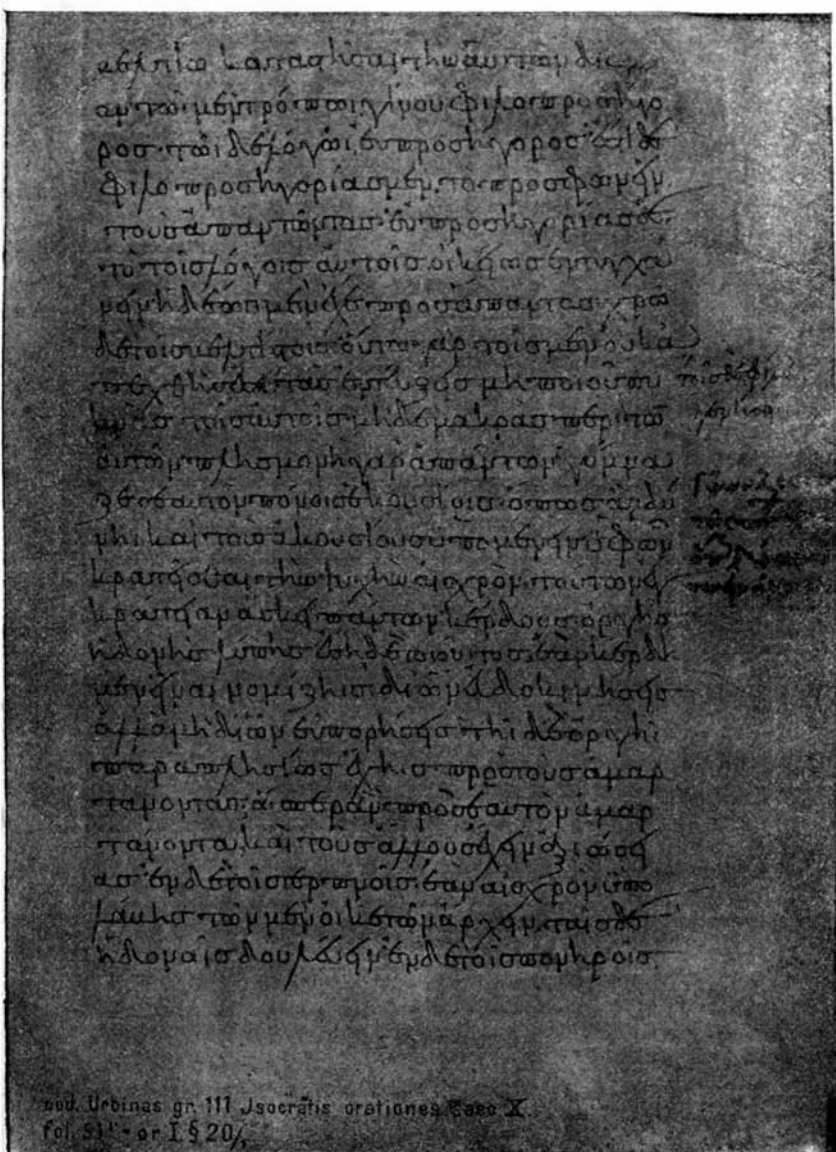 βελτίω καταστῆσαι τὴν αὑτῶν διά
αν τῶι μὲν τρόπωι γίνου φιλοπροσήγο
ρος· τῶι δὲ λόγωι, εὐπροσήγορος· ἔστι δὲ
φιλοπροσηγορίας μὲν, τὸ προσφωνεῖν
τοὺς ἀπαντῶντας· εὐπροσηγορίας δὲ
τὸ τοῖς λόγοις αὐτοῖς οἰκείως ἐντυγχά
νειν· ἡδέως μὲν ἔχε πρὸς ἅπαντας· χρῶ
δὲ τοῖς βελτίστοις· οὕτω γὰρ τοῖς μὲν οὐκ ἀ
πεχθὴς ἔσει τὰς ἐντεύξεις μὴ ποιοῦ πυ
κνὰς τοῖς αὐτοῖς· μηδὲ μακρὰς περὶ τῶν
αὐτῶν· πλησμονὴ γὰρ ἁπάντων· γύμνα
ζε σεαυτὸν πόνοις ἑκουσίοις· ὅπως ἂν δύ
νηι καὶ τοὺς ἀκουσίους ὑπομένειν· ὑφ' ὧν
κρατεῖσθαι τὴν ψυχὴν αἰσχρὸν, τούτων ἐγ
κράτειαν ἄσκει πάντων· κέρδους· ὀργῆς
ἡδονῆς λύπης· ἔσηι δὲ τοιοῦτος· ἐὰν κέρδη
μὲν εἶναι νομίζηις· δι' ὧν εὐδοκιμήσεις
ἀλλὰ μὴ δι' ὧν εὐπορήσεις· τῆι δὲ ὀργῆι
παραπλησίως ἔχηις πρὸς τοὺς ἁμαρ
τάνοντας· ὥσπερ ἂν πρὸς ἑαυτὸν ἁμαρ
τάνοντα, καὶ τοὺς ἄλλους ἔχειν ἀξιώσει
ας· ἐν δὲ τοῖς τερπνοῖς· ἐὰν αἰσχρὸν ὑπο
λάβηις τῶν μὲν οἰκετῶν ἄρχειν, ταῖς δὲ
ἡδοναῖς δουλεύειν· ἐν δὲ τοῖς πονηροῖς
cod. Urbinas gr. 111 Isocratis orationes saec X